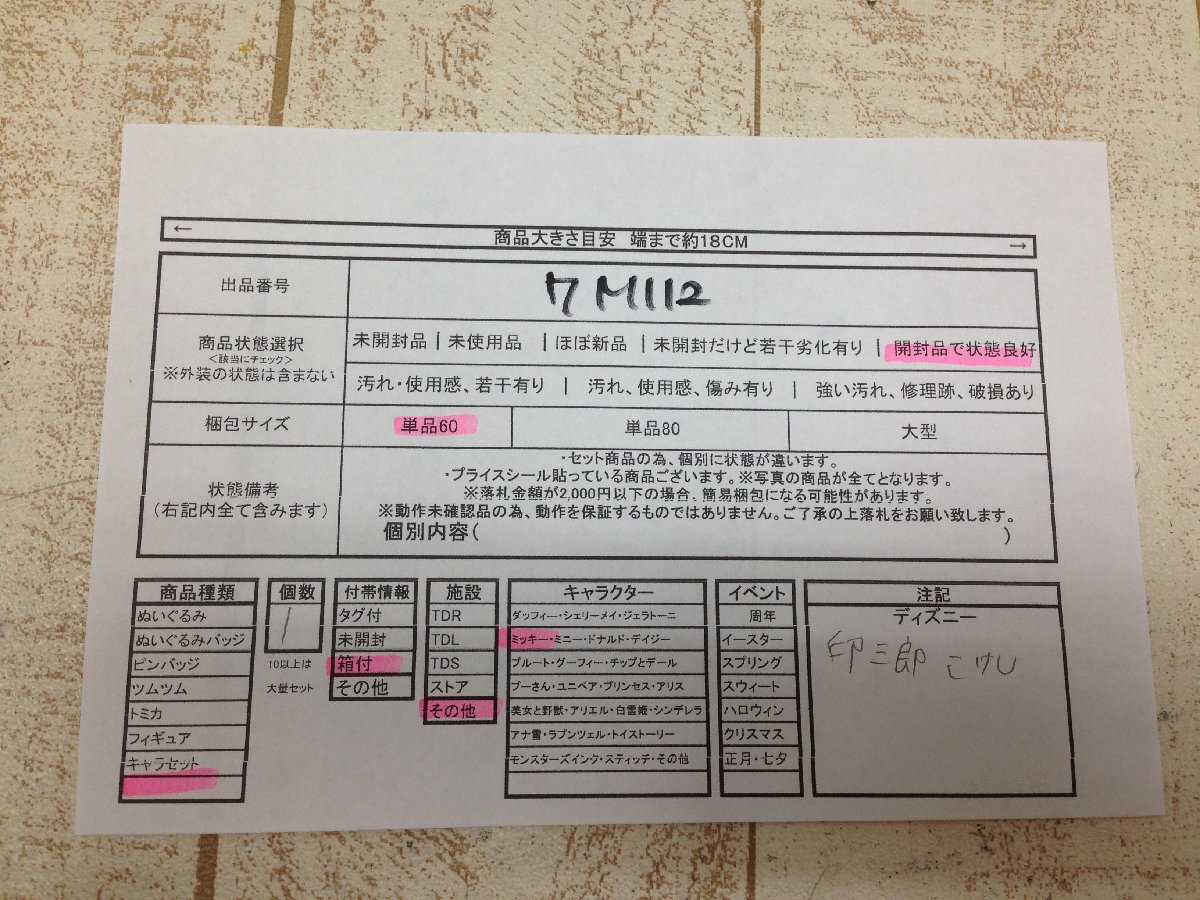 ← 商品大きさ目安 端まで約18CM →
出品番号 7M112
商品状態選択
<該当にチェック>
※外装の状態は含まない
未開封品 | 未使用品 | ほぼ新品 | 未開封だけど若干劣化有り | 開封品で状態良好
汚れ・使用感、若干有り | 汚れ、使用感、傷み有り | 強い汚れ、修理跡、破損あり
梱包サイズ 単品60 単品80 大型
状態備考
(右記内全て含みます)
・セット商品の為、個別に状態が違います。
・プライスシール貼っている商品ございます。※写真の商品が全てとなります。
※落札金額が2,000円以下の場合、簡易梱包になる可能性があります。
※動作未確認品の為、動作を保証するものではありません。ご了承の上落札をお願い致します。
個別内容( )
商品種類
ぬいぐるみ
ぬいぐるみバッジ
ピンバッジ
ツムツム
トミカ
フィギュア
キャラセット
個数
1
10以上は
大量セット
付帯情報
タグ付
未開封
箱付
その他
施設
TDR
TDL
TDS
ストア
その他
キャラクター
ダッフィー・シェリーメイ・ジェラトーニ
ミッキー・ミニー・ドナルド・デイジー
プルート・グーフィー・チップとデール
プーさん・ユニベア・プリンセス・アリス
美女と野獣・アリエル・白雪姫・シンデレラ
アナ雪・ラプンツェル・トイストーリー
モンスターズインク・スティッチ・その他
イベント
周年
イースター
スプリング
スウィート
ハロウィン
クリスマス
正月・七夕
注記
ディズニー
卯三郎 こけし